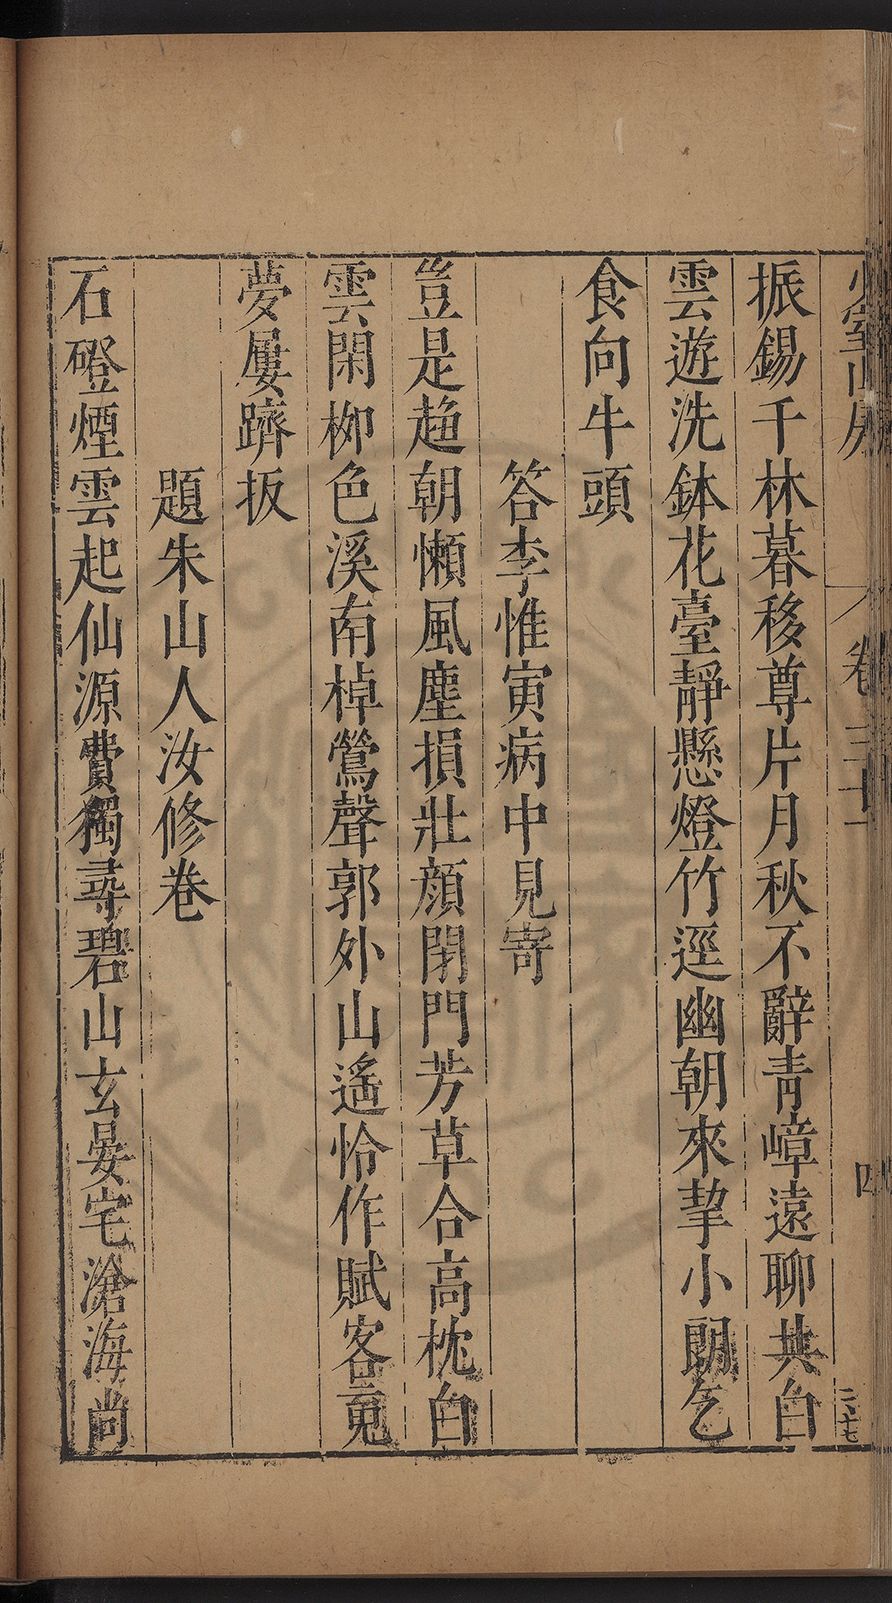 少室山房
卷三十一
四
振錫千林暮移尊片月秋不辭青嶂遠聊共白
雲遊洗鉢花臺靜懸燈竹逕幽朝來挈小朗乞
食向牛頭
答李惟寅病中見寄
豈是趍朝懶風塵損壯顔閉門芳草合高枕白
雲閑柳色溪南棹鶯聲郭外山遙怜作賦客寬
夢屢躋扳
題朱山人汝修卷
石磴煙雲起仙源費獨尋碧山玄晏宅滄海尚